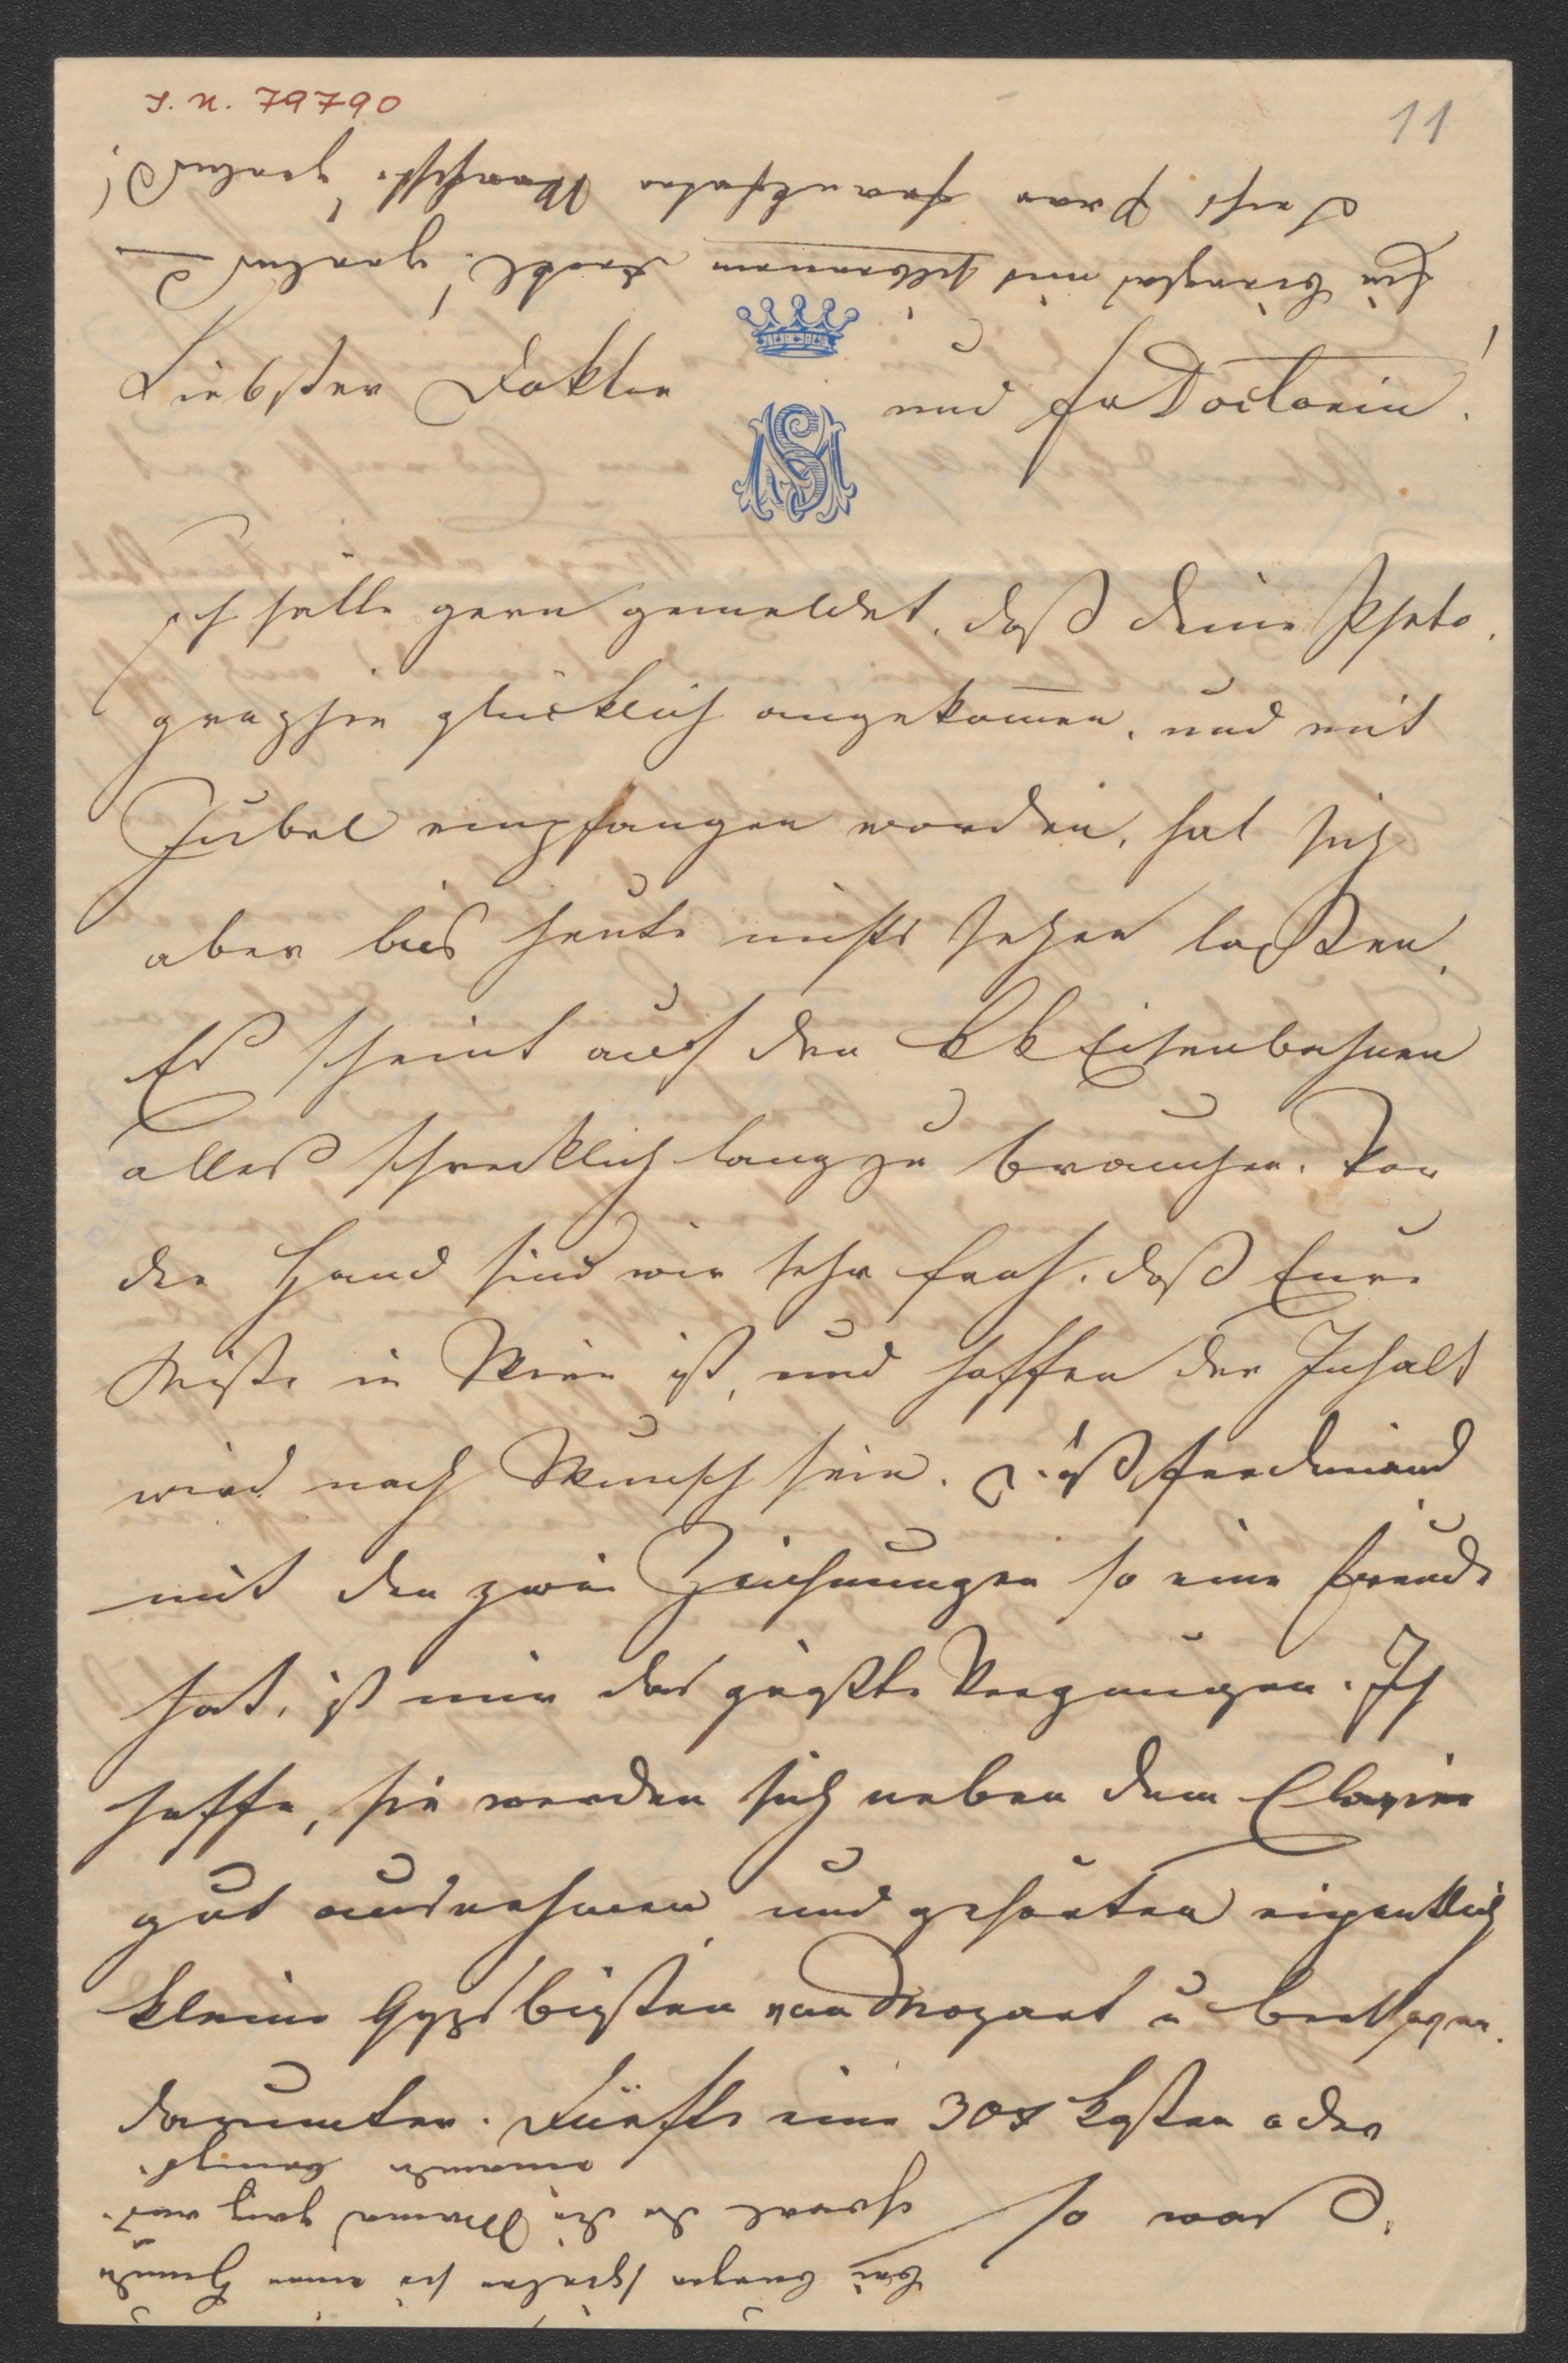 I. N. 79790
11
Liebster Doktor und fr Doctorin!
Ich hätte gern gemeldet, daß deine Photo,
graphie glücklich angekom̄en, und mit
Jubel empfangen worden, hat sich
aber bis heute nichts sehen laßen.
Es scheint auf den kk Eisenbahnen
alles schrecklich lang zu brauchen. Vor
der Hand sind wir sehr froh, daß Eure
Kiste in Wien ist, und hoffen der Inhalt
wird nach Wunsch sein. Daß Ferdinand
mit den zwei Zeichnungen so eine Freude
hat, ist mir das größte Vergnügen. Ich
hoffe, sie werden sich neben dem Clavier
gut ausnehmen und gehörten eigentlich
kleine Gypsbüsten von Mozart u Beethoven
darunter. Dürfte eine 30 x kosten oder
so was.
Bei Bauern spielen sie einen
Choral da die Mama ganz